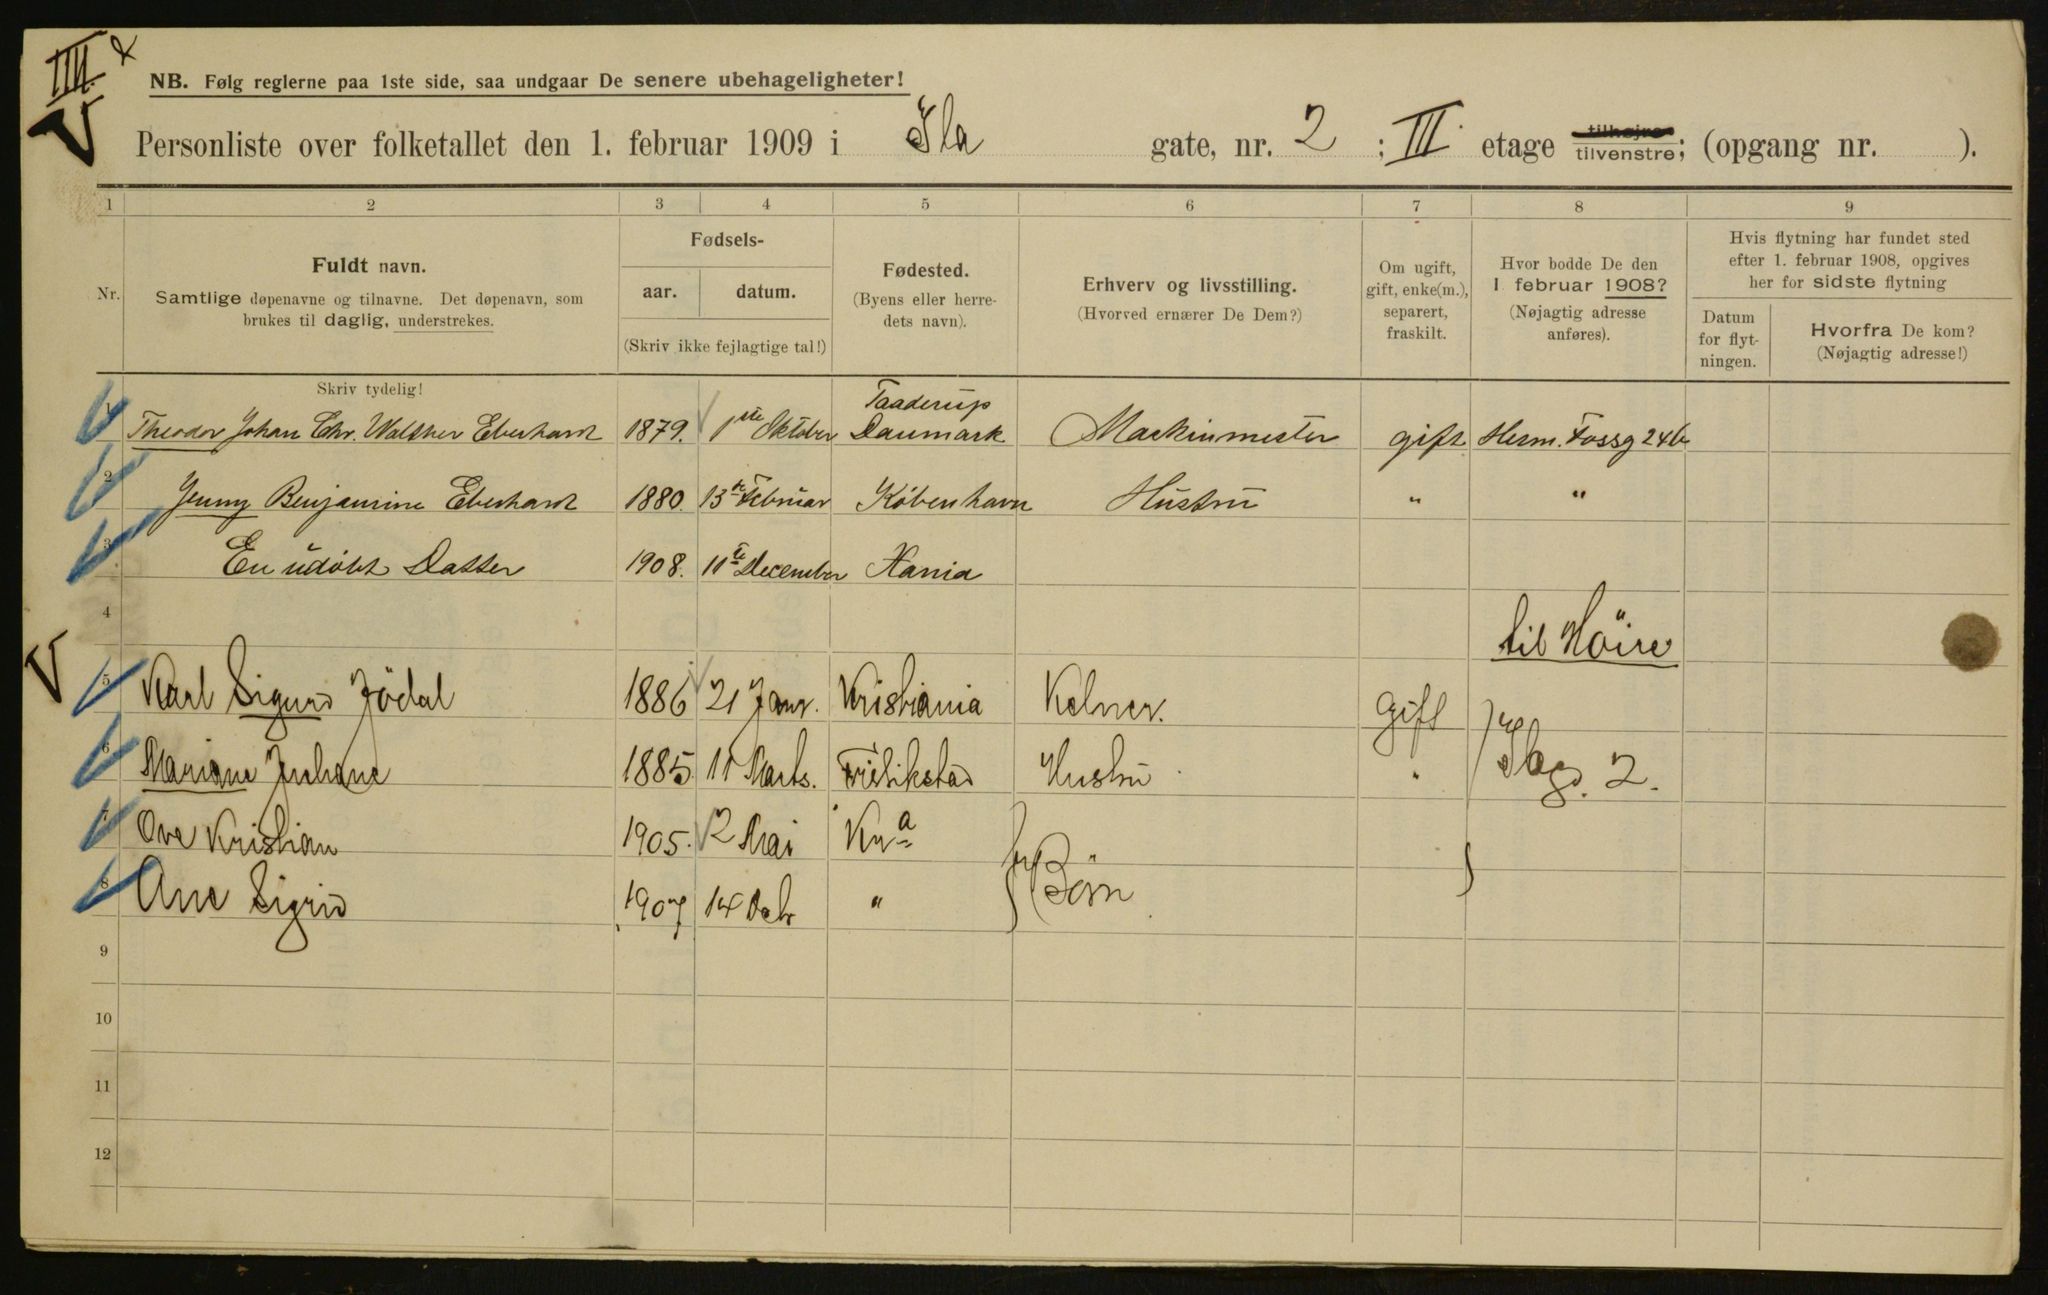 III. x
V
NB. Følg reglerne paa 1ste side, saa undgaar De senere ubehageligheter!
Personliste over folketallet den 1. februar 1909 i Ila gate, nr. 2 ; III etage tilhøjre tilvenstre; (opgang nr. ).
1 2 3 4 5 6 7 8 9
Nr.
Fuldt navn.
Samtlige døpenavne og tilnavne. Det døpenavn, som
brukes til daglig, understrekes.
Fødsels-
aar. datum.
(Skriv ikke fejlagtige tal!)
Fødested.
(Byens eller herre-
dets navn).
Erhverv og livsstilling.
(Hvorved ernærer De Dem?)
Om ugift,
gift, enke(m.),
separert,
fraskilt.
Hvor bodde De den
1 februar 1908?
(Nøjagtig adresse
anføres).
Hvis flytning har fundet sted
efter 1. februar 1908, opgives
her for sidste flytning
Datum
for flyt-
ningen.
Hvorfra De kom?
(Nøjagtig adresse!)
Skriv tydelig!
1 Theodor Johan Chr. Walther Eberhardt 1879. 1ste Oktober Taaderup Danmark Maskinmester gift Herm. Fossg 24b
2 Jenny Benjamine Eberhardt 1880. 13de Februar København Hustru " "
3 En udøbt Datter 1908. 11te December Kania
4 til Höire
V
5 Karl Sigurd Jödal 1886 21 Janr. Kristiania Kelner. gift
6 Mariane Juliane 1885 11 Marts. Fredrikstad Hustru " Ilagd. 2.
7 Ove Kristian 1905. 2 Mai Kra
8 Ane Sigrid 1907 14 Debr " Börn
9
10
11
12